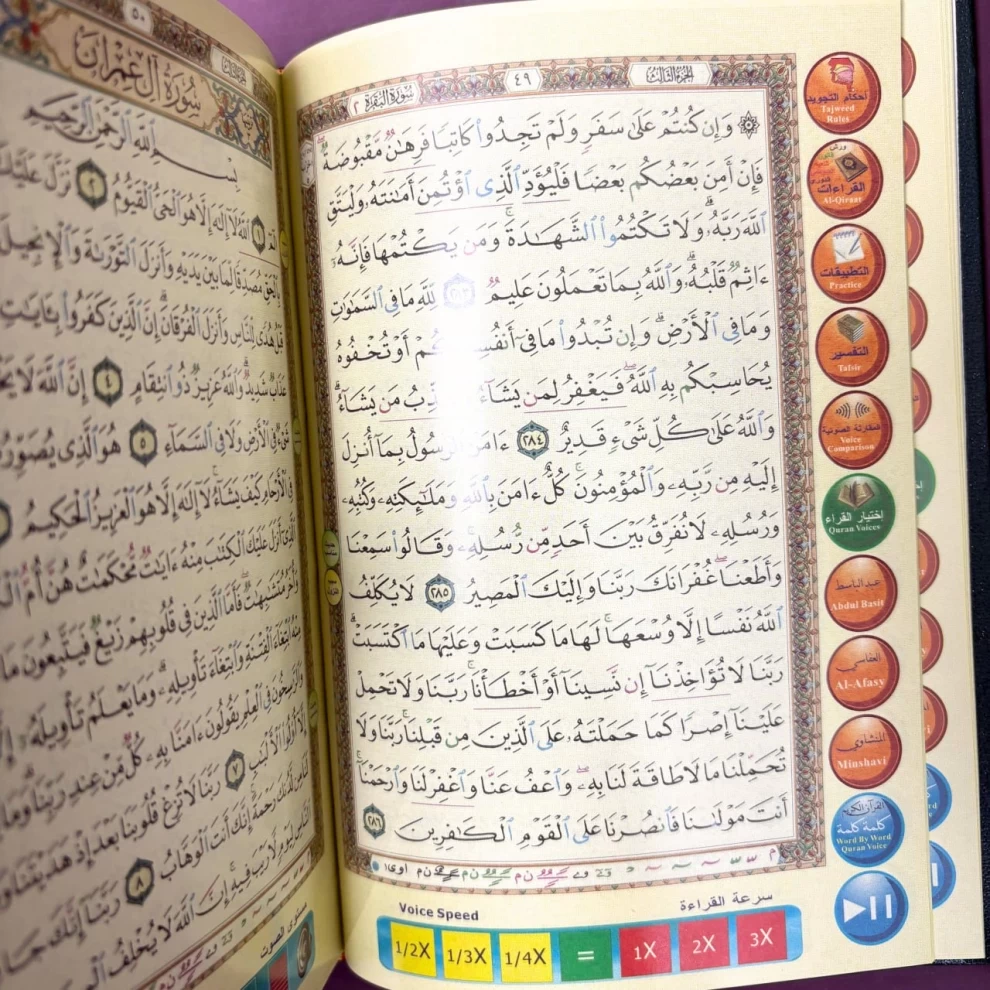 الجزء الثالث
٤٩
سورة البقرة ٢
۞ وَإِن كُنتُمْ عَلَىٰ سَفَرٍ وَلَمْ تَجِدُوا۟ كَاتِبًا فَرِهَـٰنٌ مَّقْبُوضَةٌ ۖ
فَإِنْ أَمِنَ بَعْضُكُم بَعْضًا فَلْيُؤَدِّ ٱلَّذِى ٱؤْتُمِنَ أَمَـٰنَتَهُۥ وَلْيَتَّقِ
ٱللَّهَ رَبَّهُۥ ۗ وَلَا تَكْتُمُوا۟ ٱلشَّهَـٰدَةَ ۚ وَمَن يَكْتُمْهَا فَإِنَّهُۥٓ
ءَاثِمٌ قَلْبُهُۥ ۗ وَٱللَّهُ بِمَا تَعْمَلُونَ عَلِيمٌ ٢٨٣ لِّلَّهِ مَا فِى ٱلسَّمَـٰوَٰتِ
وَمَا فِى ٱلْأَرْضِ ۗ وَإِن تُبْدُوا۟ مَا فِىٓ أَنفُسِكُمْ أَوْ تُخْفُوهُ
يُحَاسِبْكُم بِهِ ٱللَّهُ ۖ فَيَغْفِرُ لِمَن يَشَآءُ وَيُعَذِّبُ مَن يَشَآءُ ۗ
وَٱللَّهُ عَلَىٰ كُلِّ شَىْءٍ قَدِيرٌ ٢٨٤ ءَامَنَ ٱلرَّسُولُ بِمَآ أُنزِلَ
إِلَيْهِ مِن رَّبِّهِۦ وَٱلْمُؤْمِنُونَ ۚ كُلٌّ ءَامَنَ بِٱللَّهِ وَمَلَـٰٓئِكَتِهِۦ وَكُتُبِهِۦ
وَرُسُلِهِۦ لَا نُفَرِّقُ بَيْنَ أَحَدٍ مِّن رُّسُلِهِۦ ۚ وَقَالُوا۟ سَمِعْنَا
وَأَطَعْنَا ۖ غُفْرَانَكَ رَبَّنَا وَإِلَيْكَ ٱلْمَصِيرُ ٢٨٥ لَا يُكَلِّفُ
ٱللَّهُ نَفْسًا إِلَّا وُسْعَهَا ۚ لَهَا مَا كَسَبَتْ وَعَلَيْهَا مَا ٱكْتَسَبَتْ ۗ
رَبَّنَا لَا تُؤَاخِذْنَآ إِن نَّسِينَآ أَوْ أَخْطَأْنَا ۚ رَبَّنَا وَلَا تَحْمِلْ
عَلَيْنَآ إِصْرًا كَمَا حَمَلْتَهُۥ عَلَى ٱلَّذِينَ مِن قَبْلِنَا ۚ رَبَّنَا وَلَا
تُحَمِّلْنَا مَا لَا طَاقَةَ لَنَا بِهِۦ ۖ وَٱعْفُ عَنَّا وَٱغْفِرْ لَنَا وَٱرْحَمْنَآ ۚ
أَنتَ مَوْلَىٰنَا فَٱنصُرْنَا عَلَى ٱلْقَوْمِ ٱلْكَـٰفِرِينَ ٢٨٦
أحكام التجويد
Tajweed
Rules
ورش
القراءات
Al-Qiraat
التطبيقات
Practice
التفسير
Tafsir
المقارنة الصوتية
Voice
Comparison
إختيار القراء
Quran Voices
عبد الباسط
Abdul Basit
العفاسي
Al-Afasy
المنشاوي
Minshavi
القرآن الكريم
كلمة كلمة
Word By Word
Quran Voice
Voice Speed
سرعة القراءة
1/2X
1/3X
1/4X
=
1X
2X
3X
الجزء الثالث
٥٠
سورة آل عمران
بسم الله الرحمن الرحيم
الٓمٓ ١ ٱللَّهُ لَآ إِلَـٰهَ إِلَّا هُوَ ٱلْحَىُّ ٱلْقَيُّومُ ٢ نَزَّلَ عَلَيْكَ
بِٱلْحَقِّ مُصَدِّقًا لِّمَا بَيْنَ يَدَيْهِ وَأَنزَلَ ٱلتَّوْرَىٰةَ وَٱلْإِنجِيلَ
قَبْلُ هُدًى لِّلنَّاسِ وَأَنزَلَ ٱلْفُرْقَانَ ۗ إِنَّ ٱلَّذِينَ كَفَرُوا۟ بِـَٔايَـٰتِ
عَذَابٌ شَدِيدٌ ۗ وَٱللَّهُ عَزِيزٌ ذُو ٱنتِقَامٍ ٤ إِنَّ ٱللَّهَ لَا
شَىْءٌ فِى ٱلْأَرْضِ وَلَا فِى ٱلسَّمَآءِ ٥ هُوَ ٱلَّذِى يُصَوِّرُ
فِى ٱلْأَرْحَامِ كَيْفَ يَشَآءُ ۚ لَآ إِلَـٰهَ إِلَّا هُوَ ٱلْعَزِيزُ ٱلْحَكِيمُ
ٱلَّذِىٓ أَنزَلَ عَلَيْكَ ٱلْكِتَـٰبَ مِنْهُ ءَايَـٰتٌ مُّحْكَمَـٰتٌ هُنَّ أُمُّ
وَأُخَرُ مُتَشَـٰبِهَـٰتٌ ۖ فَأَمَّا ٱلَّذِينَ فِى قُلُوبِهِمْ زَيْغٌ فَيَتَّبِعُونَ مَا
مِنْهُ ٱبْتِغَآءَ ٱلْفِتْنَةِ وَٱبْتِغَآءَ تَأْوِيلِهِۦ ۗ وَمَا يَعْلَمُ تَأْوِيلَهُۥٓ
وَٱلرَّٰسِخُونَ فِى ٱلْعِلْمِ يَقُولُونَ ءَامَنَّا بِهِۦ كُلٌّ مِّنْ عِندِ رَبِّنَا ۗ وَمَا
إِلَّآ أُو۟لُوا۟ ٱلْأَلْبَـٰبِ ٧ رَبَّنَا لَا تُزِغْ قُلُوبَنَا بَعْدَ إِذْ هَدَيْتَنَا
لَنَا مِن لَّدُنكَ رَحْمَةً ۚ إِنَّكَ أَنتَ ٱلْوَهَّابُ ٨ رَبَّنَآ إِنَّكَ جَامِعُ
ٱلنَّاسِ لِيَوْمٍ لَّا رَيْبَ فِيهِ ۚ إِنَّ ٱللَّهَ لَا يُخْلِفُ
مستوى الصوت